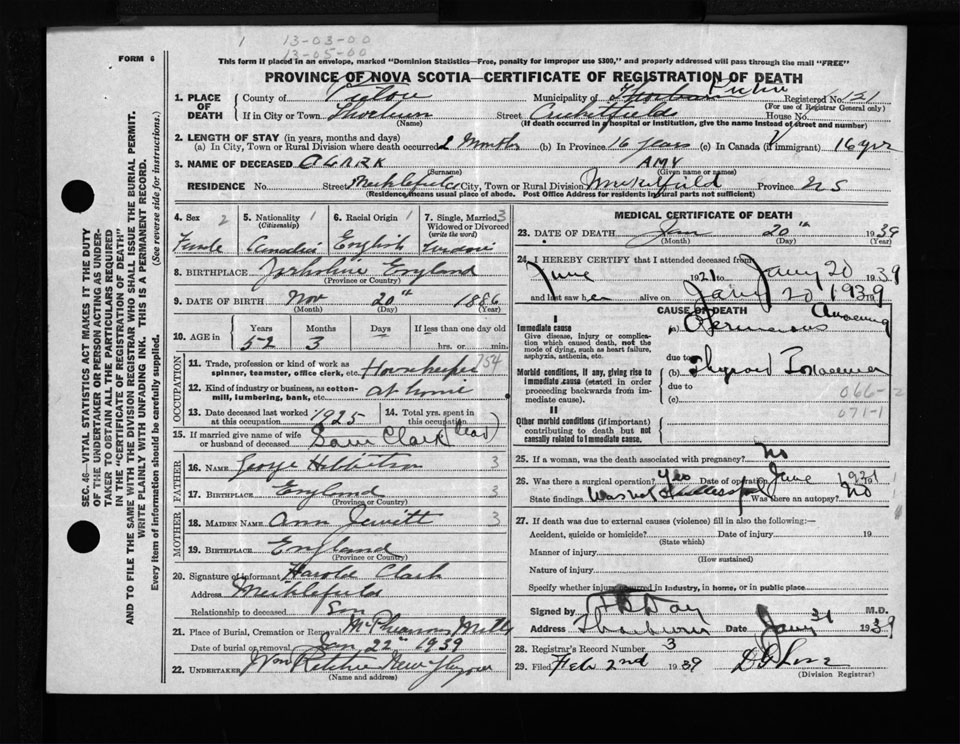 1 13-03-00
13-05-00
FORM 6
This form if placed in an envelope, marked "Dominion Statistics—Free, penalty for improper use $300," and properly addressed will pass through the mail "FREE"
PROVINCE OF NOVA SCOTIA—CERTIFICATE OF REGISTRATION OF DEATH
SEC. 46—VITAL STATISTICS ACT MAKES IT THE DUTY
OF THE UNDERTAKER OR PERSON ACTING AS UNDER-
TAKER TO OBTAIN ALL THE PARTICULARS REQUIRED
IN THE "CERTIFICATE OF REGISTRATION OF DEATH"
AND TO FILE THE SAME WITH THE DIVISION REGISTRAR WHO SHALL ISSUE THE BURIAL PERMIT.
WRITE PLAINLY WITH UNFADING INK. THIS IS A PERMANENT RECORD.
Every item of information should be carefully supplied. (See reverse side for instructions.)
1. PLACE OF DEATH County of Pictou Municipality of Pictou Registered No. 121
(For use of Registrar General only)
If in City or Town Thorburn (Name) Street House No.
(If death occurred in a hospital or institution, give the name instead of street and number)
2. LENGTH OF STAY (in years, months and days)
(a) In City, Town or Rural Division where death occurred 2 Months (b) In Province 16 years (c) In Canada (if immigrant) 16 yrs
3. NAME OF DECEASED CLARK (Surname) AMY (Given name or names)
RESIDENCE No. Street City, Town or Rural Division Province NS
(Residence means usual place of abode. Post Office Address for residents in rural parts not sufficient)
4. Sex 2 Female
5. Nationality 1 (Citizenship) Canadian
6. Racial Origin 1 English
7. Single, Married, 3 Widowed or Divorced (write the word)
8. BIRTHPLACE Yorkshire England
(Province or Country)
9. DATE OF BIRTH Nov 20th 1886
(Month) (Day) (Year)
10. AGE in Years Months Days If less than one day old
52 3 hrs. or min.
OCCUPATION
11. Trade, profession or kind of work as spinner, teamster, office clerk, etc. Housekeeper 754
12. Kind of industry or business, as cotton-mill, lumbering, bank, etc. at home
13. Date deceased last worked at this occupation 1925
14. Total yrs. spent in this occupation
15. If married give name of wife or husband of deceased Sam Clark (dead)
FATHER
16. NAME George 3
17. BIRTHPLACE England
(Province or Country)
MOTHER
18. MAIDEN NAME Ann Jewitt 3
19. BIRTHPLACE England
(Province or Country)
20. Signature of informant Harold Clark
Address Meiklefields
Relationship to deceased Son
21. Place of Burial, Cremation or Removal McPhersons Mills
Date of burial or removal Jan 22nd 1939
22. UNDERTAKER Wm Ritchie New Glasgow
(Name and address)
MEDICAL CERTIFICATE OF DEATH
23. DATE OF DEATH Jan 20th 1939
(Month) (Day) (Year)
24. I HEREBY CERTIFY that I attended deceased from
June 1921 to Jany 20 1939
and last saw her alive on Jany 20 1939
CAUSE OF DEATH
I
Immediate cause
Give disease, injury or complication which caused death, not the mode of dying, such as heart failure, asphyxia, asthenia, etc.
(a) Pernicious Anaemia
due to
Morbid conditions, if any, giving rise to immediate cause (stated in order proceeding backwards from immediate cause).
(b) Thyroid
due to
(c)
066-2
071-1
II
Other morbid conditions (if important) contributing to death but not causally related to immediate cause.
25. If a woman, was the death associated with pregnancy? No
26. Was there a surgical operation? Yes Date of operation June 1921
State findings Was not successful Was there an autopsy? No
27. If death was due to external causes (violence) fill in also the following:—
Accident, suicide or homicide? Date of injury 19
(State which)
Manner of injury
(How sustained)
Nature of injury
Specify whether injury occurred in industry, in home, or in public place
Signed by Day M.D.
Address Thorburn Date Jany 31 1939
28. Registrar's Record Number 3
29. Filed Feb 2nd 1939
(Division Registrar)